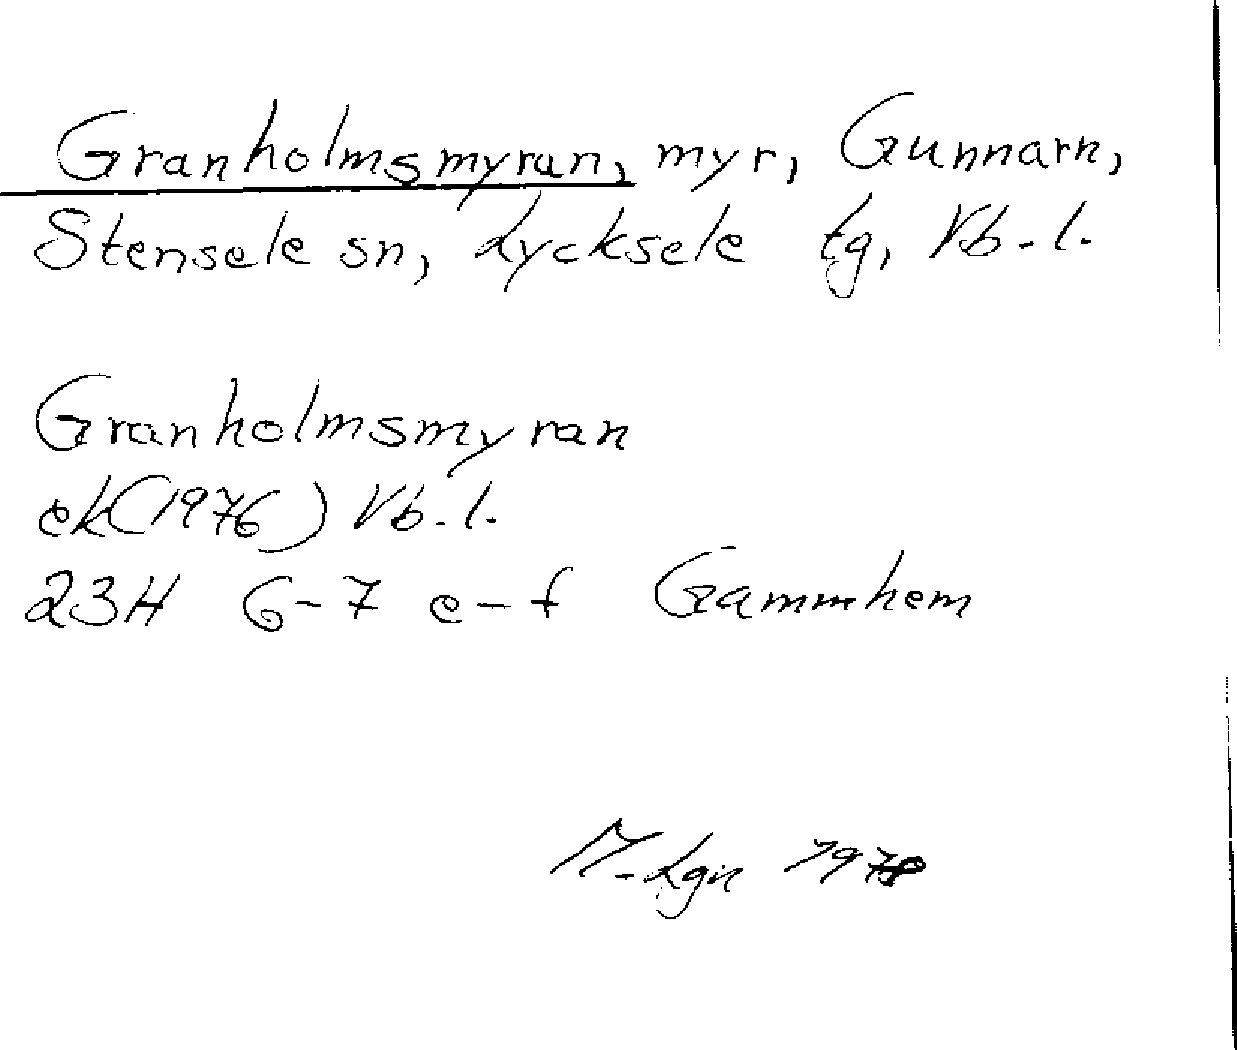 Granholmsmyran, myr, Gunnarn,
Stensele sn, Lycksele tg, Vb.l.
Granholmsmyran
ek(1976) Vb.l.
23H 6-7 e-f Gammhem
M-Lgn 1978